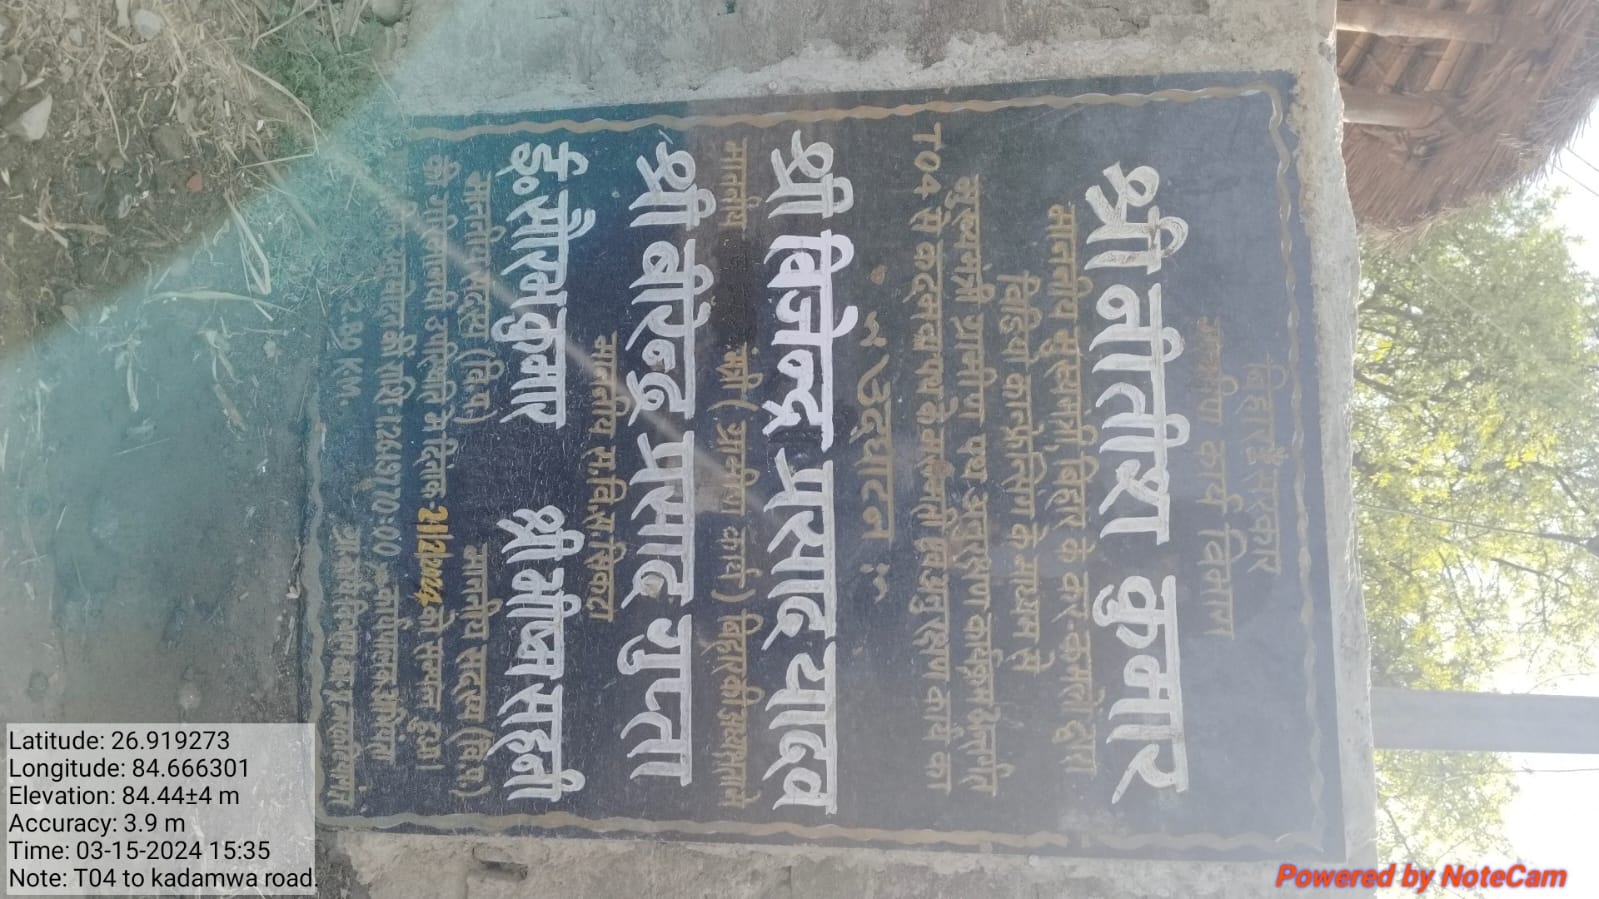 बिहार सरकार
ग्रामीण कार्य विभाग
श्री नीतीश कुमार
माननीय मुख्यमंत्री, बिहार के कर-कमलों द्वारा
विडियो कान्फ्रेंसिंग के माध्यम से
मुख्यमंत्री ग्रामीण पथ अनुरक्षण कार्यक्रम अंतर्गत
T04 से कदमवा पथ के उन्नयन एवं अनुरक्षण कार्य का
उद्घाटन
श्री विजेन्द्र प्रसाद यादव
माननीय मंत्री (ग्रामीण कार्य) बिहार की अध्यक्षता में
श्री बीरेन्द्र प्रसाद गुप्ता
माननीय स.वि.स. सिकटा
ई० सौरभ कुमार श्री भीष्म साहनी
माननीय सदस्य (वि.प.) माननीय सदस्य (वि.प.)
की गरिमामयी उपस्थिति में दिनांक 21/2/2024 को सम्पन्न हुआ।
की राशि-12641970:00 कार्यपालक अभियंता
2.80 KM.
Latitude: 26.919273
Longitude: 84.666301
Elevation: 84.44±4 m
Accuracy: 3.9 m
Time: 03-15-2024 15:35
Note: T04 to kadamwa road.
Powered by NoteCam